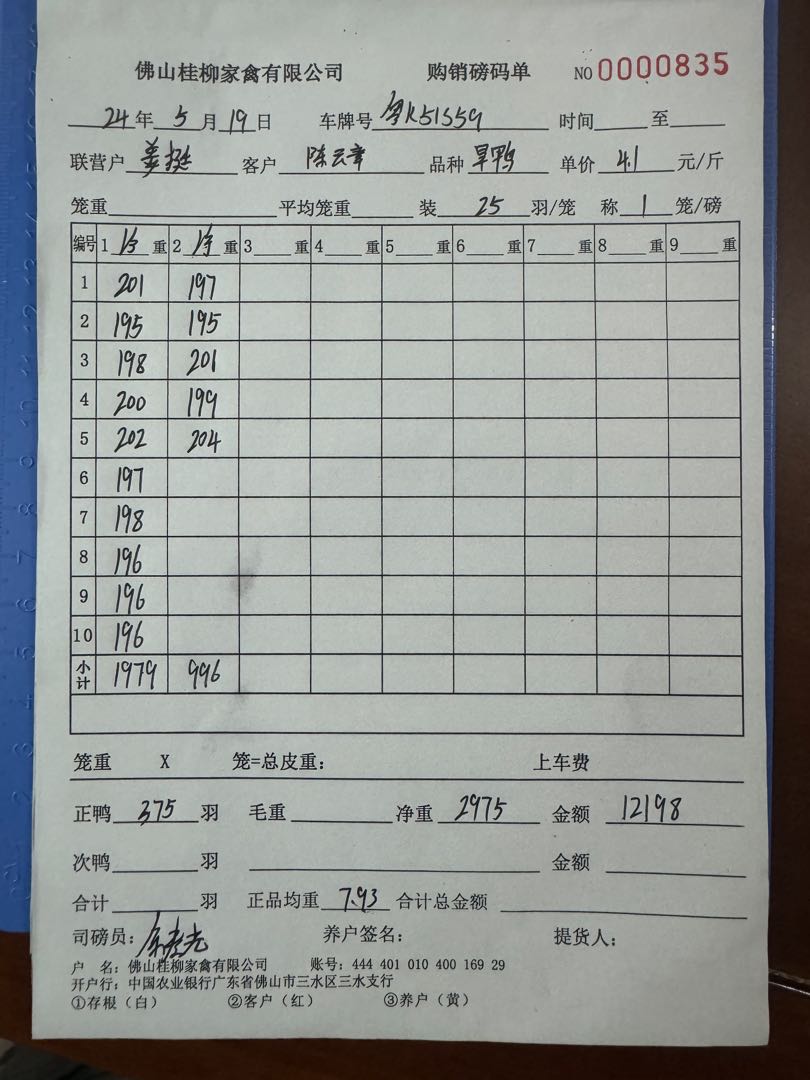 佛山桂柳家禽有限公司 购销磅码单 NO 0000835
24年 5月 19日 车牌号 粤K51S59 时间 至
联营户 姜挺 客户 陈云章 品种 旱鸭 单价 4.1 元/斤
笼重 平均笼重 装 25 羽/笼 称 1 笼/磅
编号 1 净 重 2 净 重 3 重 4 重 5 重 6 重 7 重 8 重 9 重
1 201 197
2 195 195
3 198 201
4 200 199
5 202 204
6 197
7 198
8 196
9 196
10 196
小计 1979 996
笼重 X 笼=总皮重： 上车费
正鸭 375 羽 毛重 净重 2975 金额 12198
次鸭 羽 金额
合计 羽 正品均重 7.93 合计总金额
司磅员： 养户签名： 提货人：
户 名：佛山桂柳家禽有限公司 账号：444 401 010 400 169 29
开户行：中国农业银行广东省佛山市三水区三水支行
①存根（白） ②客户（红） ③养户（黄）